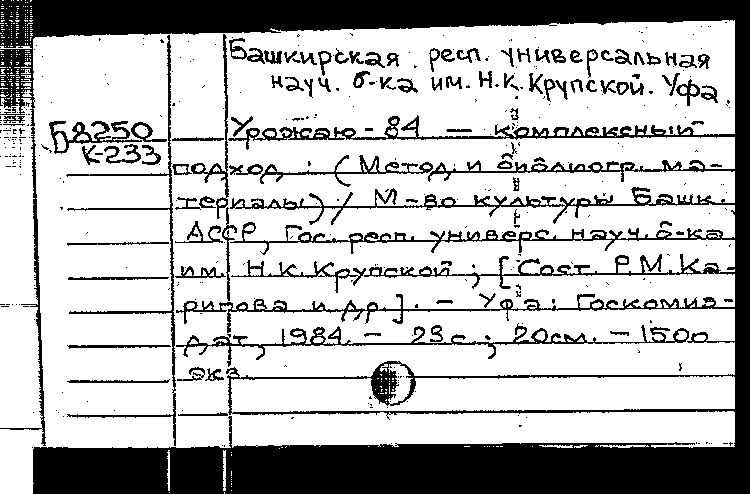 Башкирская респ. универсальная
науч. б-ка им. Н.К. Крупской. Уфа.
Б8250
К-233
Урожаю-84 — комплексный
подход : (Метод. и библиогр. ма-
териалы) / М-во культуры Башк.
АССР, Гос. респ. универс. науч. б-ка
им. Н.К. Крупской ; [Сост. Р.М. Ка-
рипова и др.]. - Уфа : Госкомиз-
дат, 1984. - 23 с. ; 20см. - 1500
экз.